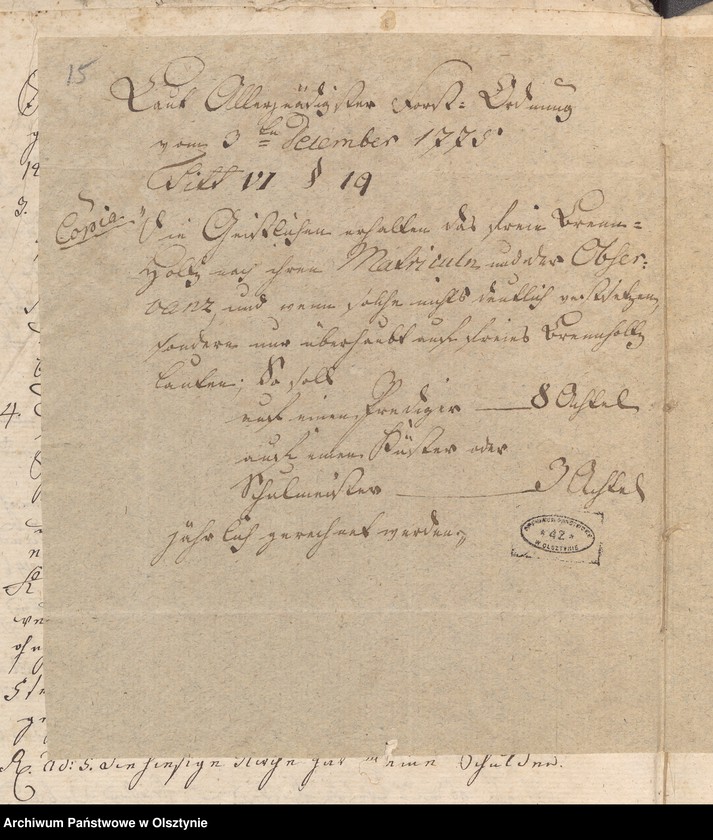 15
Laut Allergnädigster Forst= Ordnung
vom 3ten December 1775
Titt VI § 19
Copia. "Die Geistlichen erhalten das freie Brenn=
Holtz nach ihren Matriculn und der Obser=
vantz, und wenn solche nichts deutlich vestsetzen,
sondern nur überhaubt auf freies Brennholtz
lauten; So soll
auf einen Prediger — 8 Achtel
auf einen Küster oder
Schulmeister — 3 Achtel
jährlich gerechnet werden"
ARCHIWUM PAŃSTWOWE
* 42 *
W OLSZTYNIE
14
3.
4.
R. ad: 5. die hiesige Kirche hat keine Schulden.
Archiwum Państwowe w Olsztynie